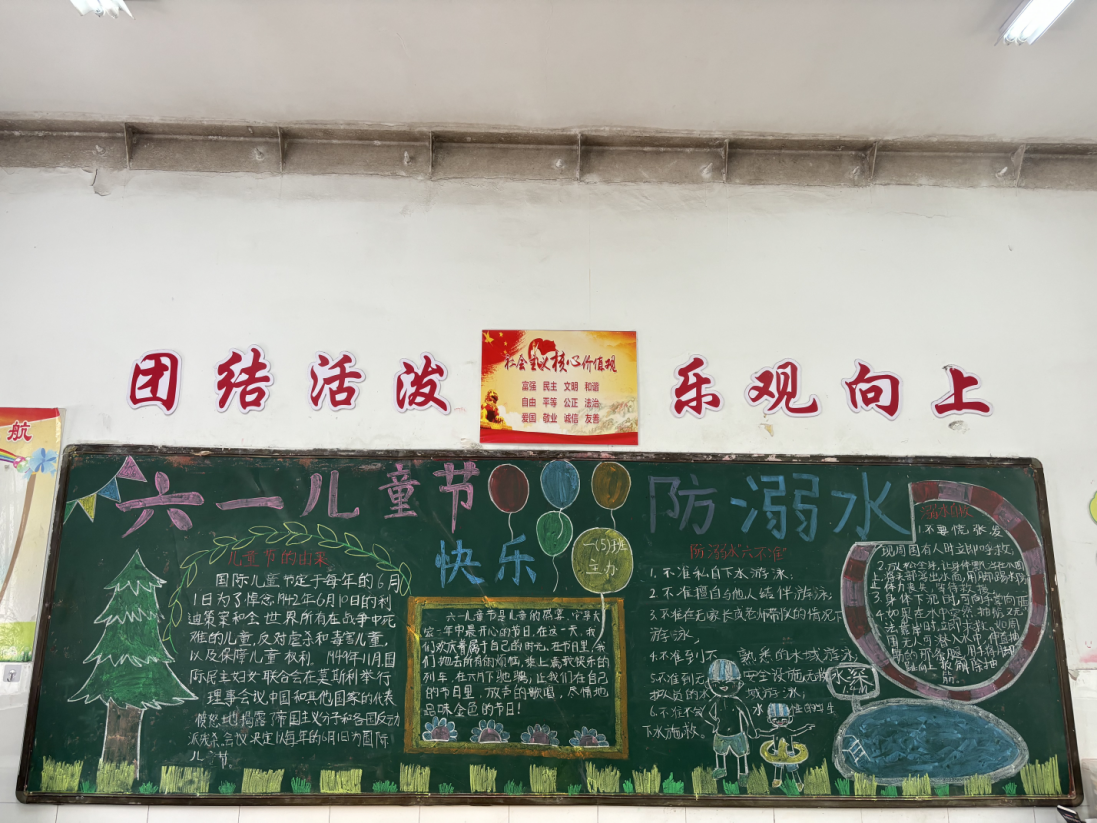 团结活泼
乐观向上
社会主义核心价值观
富强 民主 文明 和谐
自由 平等 公正 法治
爱国 敬业 诚信 友善
航
六一儿童节
快乐
一(5)班
主办
儿童节的由来
国际儿童节定于每年的6月
1日为了悼念1942年6月10日的利
迪策案和全世界所有在战争中死
难的儿童,反对虐杀和毒害儿童,
以及保障儿童权利.1949年11月,国
际民主妇女联合会在莫斯科举行
理事会议,中国和其他国家的代表
愤怒地揭露了帝国主义分子和各国反动
派 会议决定以每年的6月1日为国际
儿童节
六一儿童节是儿童的
一年中最开心的节日,在这一天,我
们欢庆着属于自己的时光,在节日里,我
们抛去所有的烦恼,乘上满载快乐的
列车,在六月下驰骋,让我们在自己
的节日里,放声的歌唱,尽情地
品味金色的节日!
防溺水
防溺水"六不准"
1.不准私自下水游泳;
2.不准擅自与他人结伴游泳;
3.不准在无家长或老师带队的情况下
游泳;
4.不准到不熟悉的水域游泳
5.不准到无安全设施无救
护人员的水域游泳;
6.不准不会水性的学生
下水施救。
水深
溺水自救
1.不要慌张,发
现周围有人时立即呼救;
2.放松全身,让身体漂浮在水面
上,将头部浮出水面,用脚踢水,防
体力丧失,等待救援;
3.身体下沉时,可将手掌向下